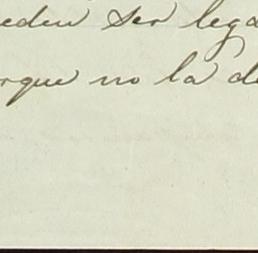 eden ser lega
rque no la de